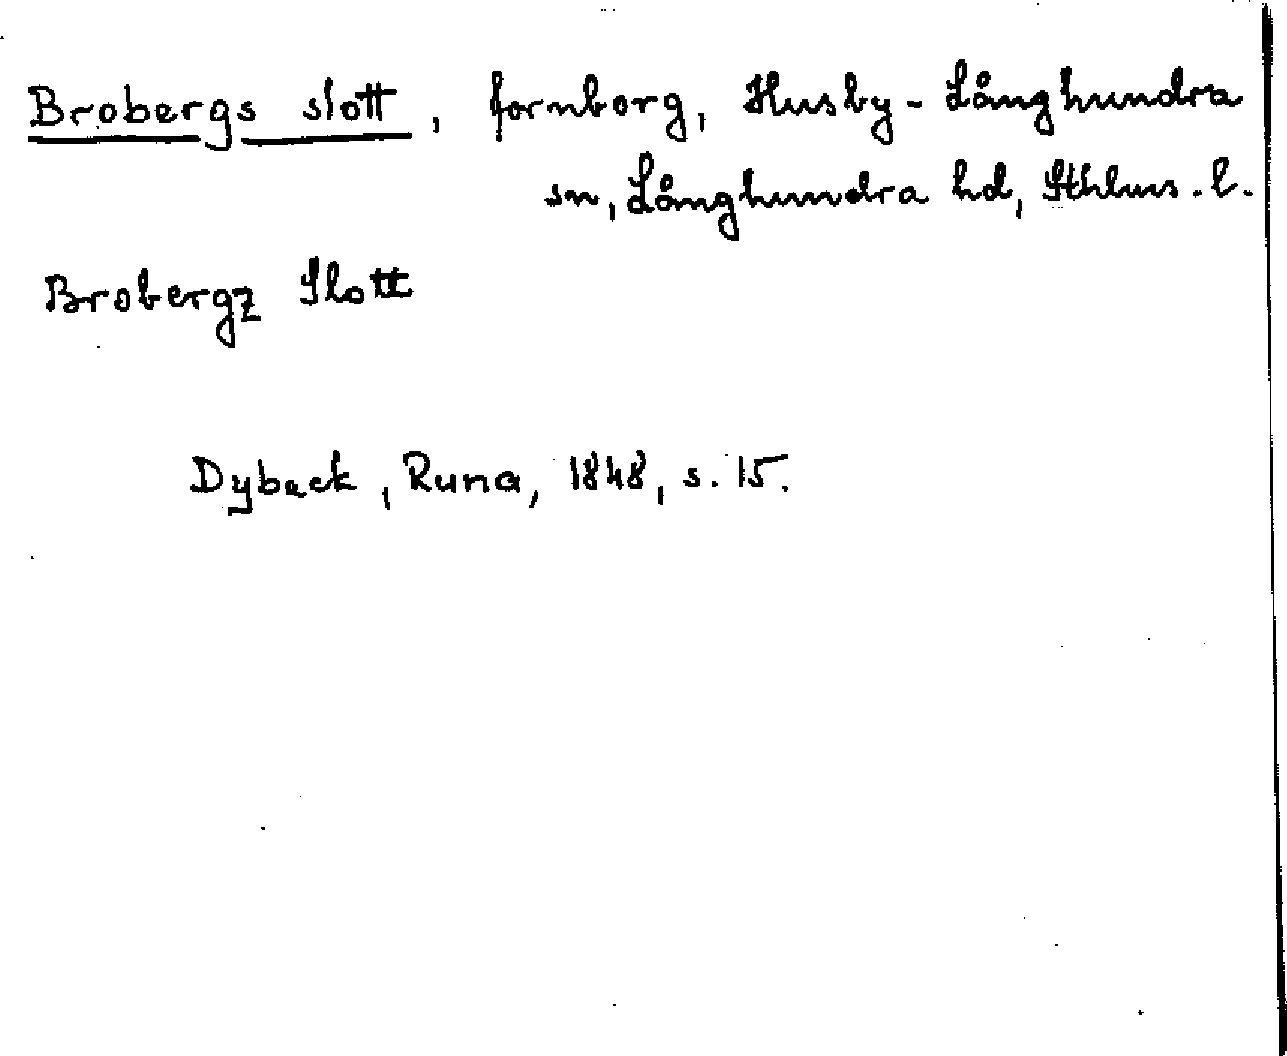 Brobergs slott, fornborg, Husby-Långhundra
sn, Långhundra hd, Sthlms. l.
Brobergz Slott
Dybeck, Runa, 1848, s. 15.